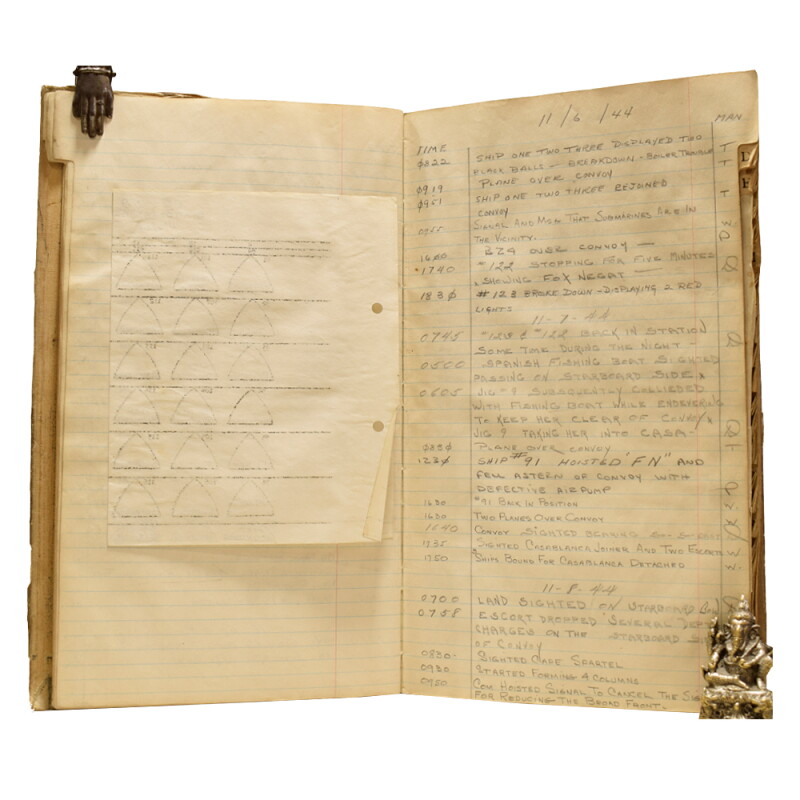 11/6/44
TIME MAN
Ø822 SHIP ONE TWO THREE DISPLAYED TWO T
BLACK BALLS – BREAKDOWN – BOILER TROUBLE T
PLANE OVER CONVOY
Ø919
Ø951 SHIP ONE TWO THREE REJOINED T
CONVOY
SIGNAL AND MSG THAT SUBMARINES ARE IN W.
THE VICINITY.
1600 BZ4 OVER CONVOY —
1740 #122 STOPPING FOR FIVE MINUTES
SHOWING FOX NEGAT —
183Ø #123 BROKE DOWN – DISPLAYING 2 RED
LIGHTS
11-7-44
0745 #123 & #122 BACK IN STATION
SOME TIME DURING THE NIGHT –
0500 SPANISH FISHING BOAT SIGHTED
PASSING ON STARBOARD SIDE
0605 JIG 9 SUBSEQUENTLY COLLIEDED
WITH FISHING BOAT WHILE ENDEVERING
TO KEEP HER CLEAR OF CONVOY
JIG 9 TAKING HER INTO CASA–
Ø83Ø PLANE OVER CONVOY
123Ø SHIP #91 HOISTED "FN" AND
FELL ASTERN OF CONVOY WITH
DEFECTIVE AIR PUMP
1630 #91 BACK IN POSITION
1630 TWO PLANES OVER CONVOY
1640 CONVOY SIGHTED BEARING
1735 SIGHTED CASABLANCA JOINER AND TWO ESCORTS W
1750 SHIPS BOUND FOR CASABLANCA DETACHED W.
11-8-44
0700 LAND SIGHTED ON STARBOARD
0758 ESCORT DROPPED SEVERAL
CHARGES ON THE STARBOARD
OF CONVOY
0830 SIGHTED CAPE SPARTEL
0930 STARTED FORMING 4 COLUMNS
0950 COM HOISTED SIGNAL TO CANCEL THE
FOR REDUCING THE BROAD FRONT.